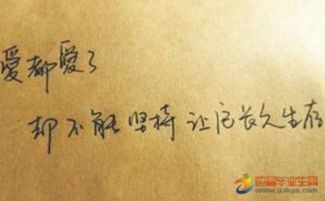 爱都爱了
却不能坚持让它长久生存
应届毕业生网